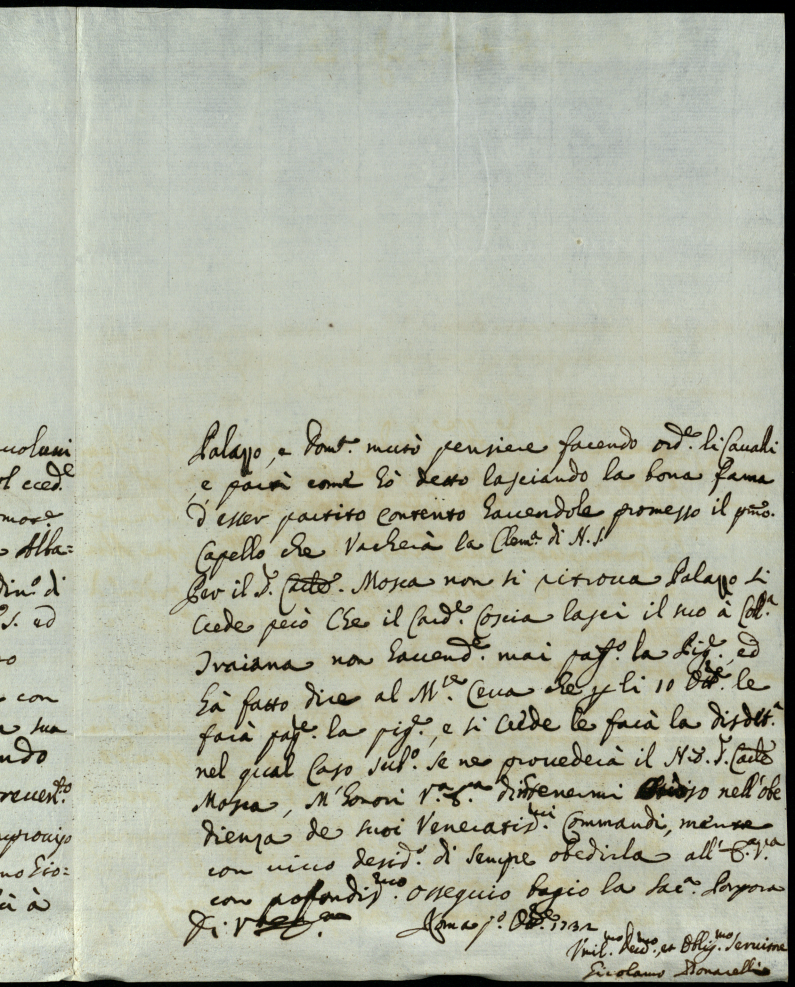 uoluni
ol eced.e
more
Alba=
din.o di
S. ed
con
sua
ndo
reueri.to
improuiso
à
Palazzo, e Dom.e mutò pensiere facendo ord.e li Caualli
, e partì come hò detto lasciando la bona fama
d'esser partito contento hauendole promesso il p.mo
Capello che Vacherà la Clem.a di N.S.
Per il S. Card.e Mosca non si ritroua Palazzo si
Crede però Che il Card.e Coscia lasci il suo à Coll.a
Traiana non hauend.e mai pag.o la Pig.e, ed
hà fatto dire al M.se Ceua che p li 10 le
farà pag.e la pig.e, e si Crede le farà la disdet.a
nel qual Caso sub.o se ne prouederà il N. S. Card.e
Mosca, M'honori V.a E.a nell'obe
dienza de suoi Veneratis.mi Commandi, mentre
con uiuo desid.o di sempre obedirla all' E.a V.a
con profondis.mo ossequio bagio la Sac.a Porpora
Di V. Roma p.o 1732
Vmil.mo Deu.mo, et Oblig.mo Seruitore
Girolamo Bonarelli